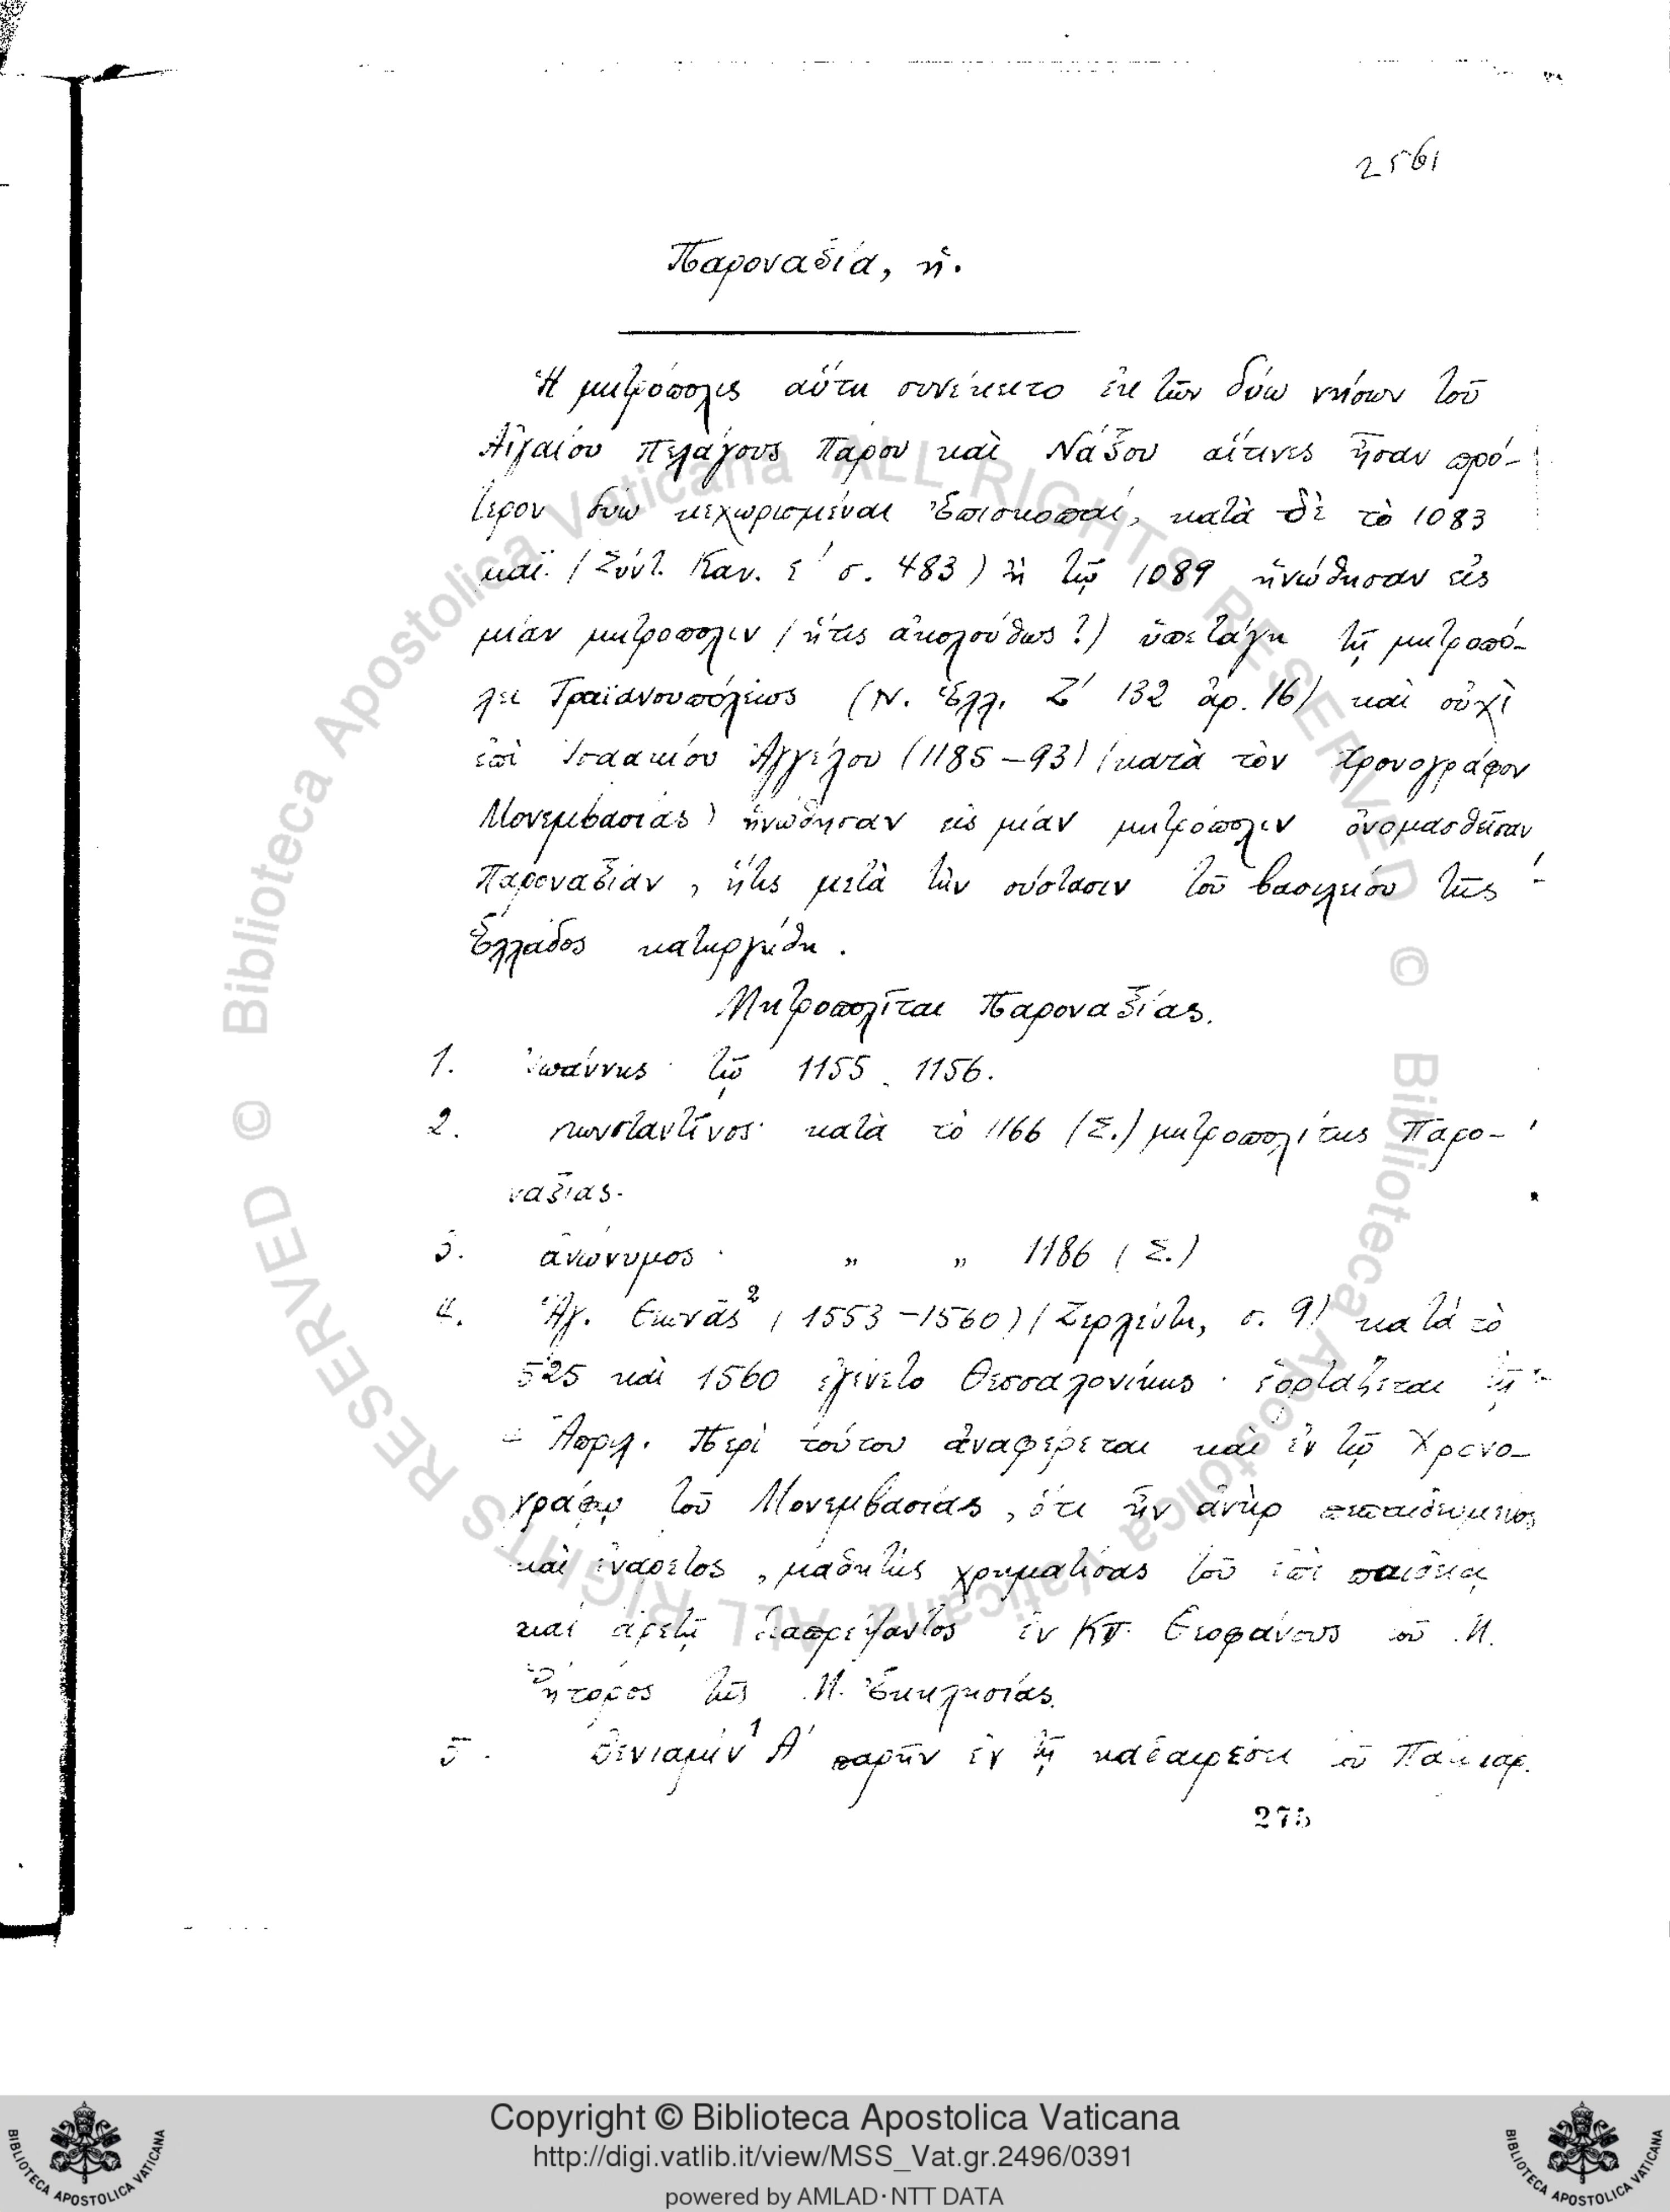 2561
Παροναξία, ἡ.
Ἡ μητρόπολις αὕτη συνέκειτο ἐκ τῶν δύω νήσων τοῦ
Αἰγαίου Πελάγους Πάρου καὶ Νάξου αἵτινες ἦσαν πρό-
τερον δύω κεχωρισμέναι Ἐπισκοπαί, κατὰ δὲ τὸ 1083
καὶ (Σύντ. Καν. ε΄ σ. 483) ἢ τῷ 1089 ἡνώθησαν εἰς
μίαν μητρόπολιν (ἥτις ἀκολούθως?) ὑπετάγη τῇ μητροπό-
λει Τραϊανουπόλεως (Ν. Ἑλλ. Ζ΄ 132 ἀρ. 16) καὶ οὐχὶ
ἐπὶ Ἰσαακίου Ἀγγέλου (1185-93) (κατὰ τὸν Χρονογράφον
Μονεμβασίας) ἡνώθησαν εἰς μίαν μητρόπολιν ὀνομασθεῖσαν
Παροναξίαν, ἥτις μετὰ τὴν σύστασιν τοῦ βασιλείου τῆς
Ἑλλάδος κατηργήθη.
Μητροπολῖται Παροναξίας.
1. Ἰωάννης τῷ 1155. 1156.
2. Κωνσταντῖνος· κατὰ τὸ 1166 (Σ.) μητροπολίτης Παρο-
ναξίας.
3. ἀνώνυμος· „ „ 1186 (Σ.)
4. Ἅγ. Θεωνᾶς² (1553-1560) (Ζερλέντη, σ. 9) κατὰ τὸ
525 καὶ 1560 ἐγένετο Θεσσαλονίκης· ἑορτάζεται τῇ
Ἀπριλ. Περὶ τούτου ἀναφέρεται καὶ ἐν τῷ Χρονο-
γράφῳ τοῦ Μονεμβασίας, ὅτι ἦν ἀνὴρ πεπαιδευμένος
καὶ ἐνάρετος, μαθητὴς χρηματίσας τοῦ ἐπὶ παιδείᾳ
καὶ ἀρετῇ διαπρέψαντος ἐν ΚΠ. Θεοφάνους τοῦ Μ.
Ῥήτορος τῆς Μ. Ἐκκλησίας.
5. Βενιαμὶν¹ Α΄ παρῆν ἐν τῇ καθαιρέσει τοῦ Πατριαρ.
275
© Biblioteca Apostolica Vaticana ALL RIGHTS RESERVED © Biblioteca Apostolica Vaticana ALL RIGHTS RESERVED
BIBLIOTECA APOSTOLICA VATICANA
Copyright © Biblioteca Apostolica Vaticana
http://digi.vatlib.it/view/MSS_Vat.gr.2496/0391
powered by AMLAD·NTT DATA
BIBLIOTECA APOSTOLICA VATICANA